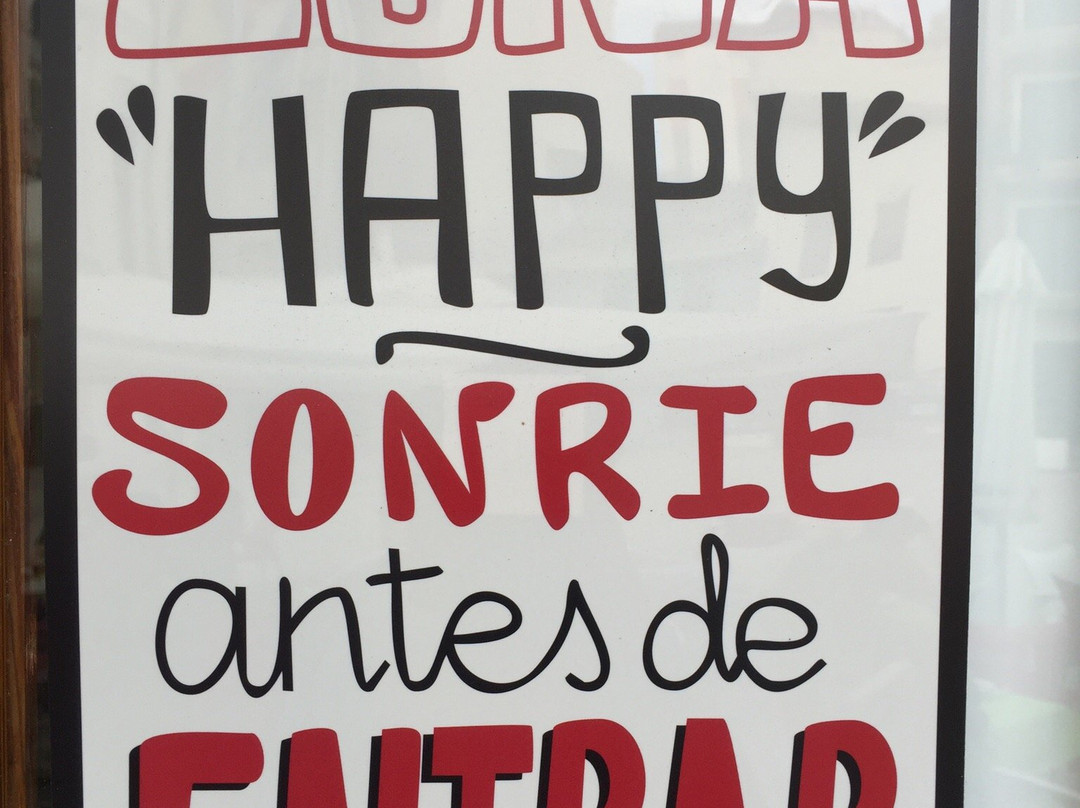 ZONA
"HAPPY"
SONRIE
antes de
ENTRAR